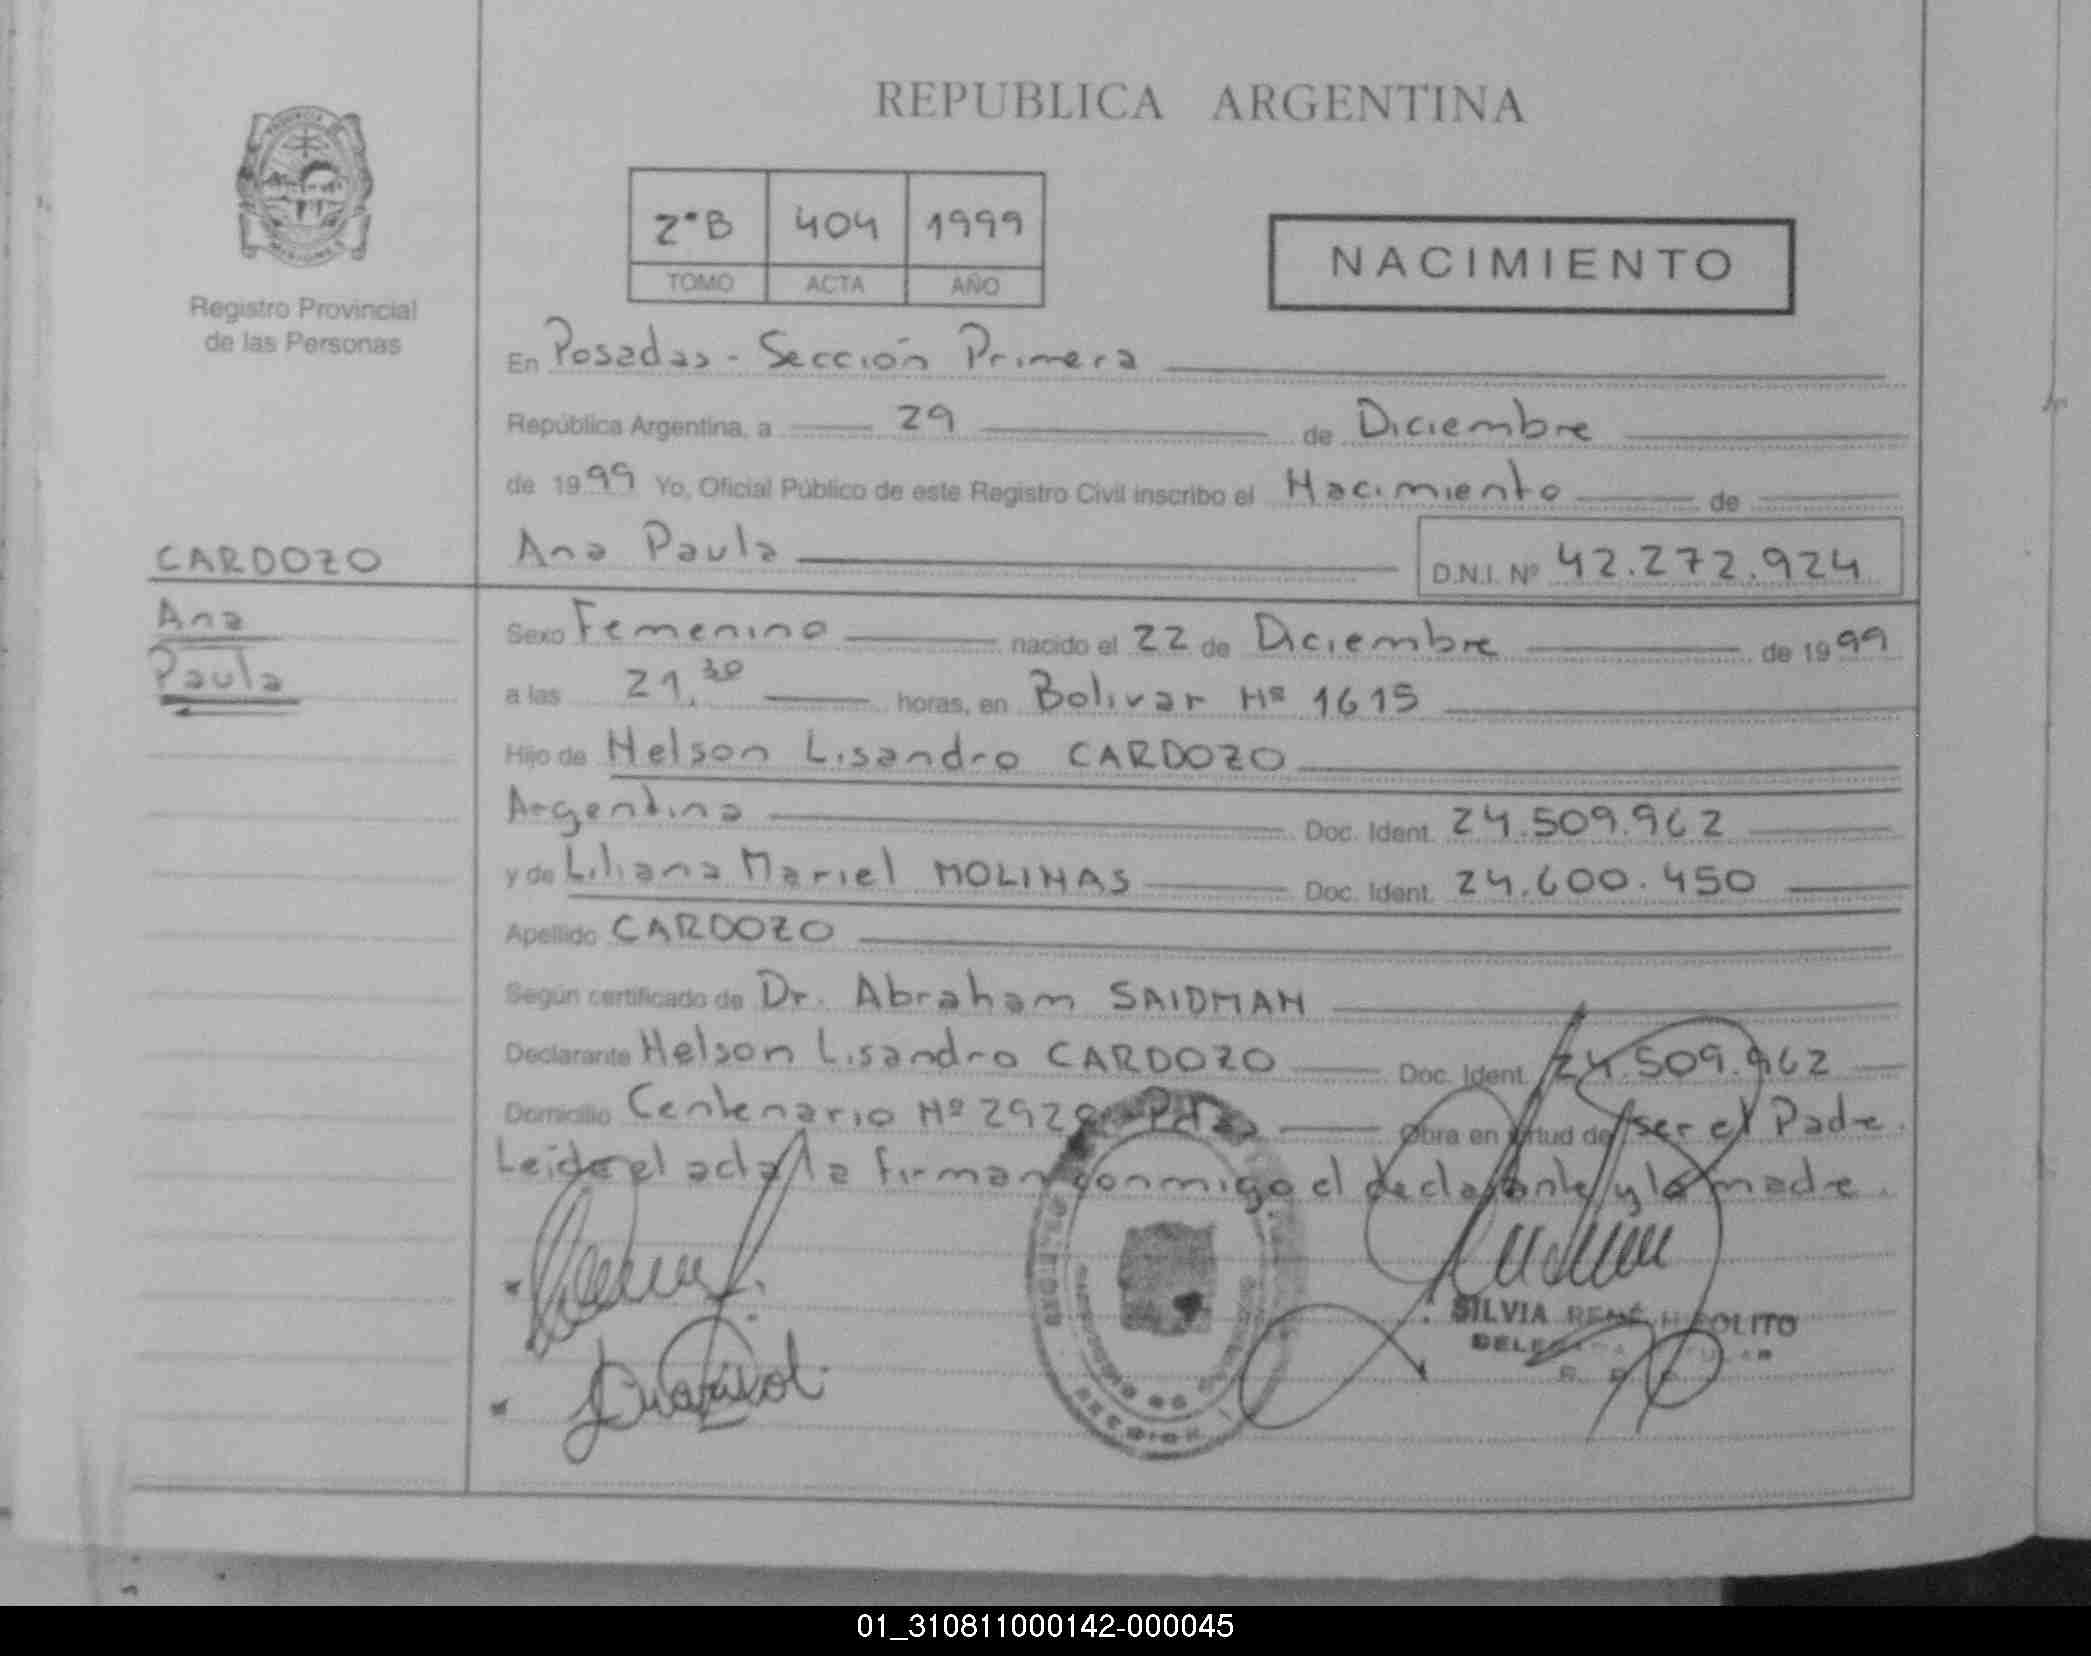 REPUBLICA ARGENTINA
2°B 404 1999
TOMO ACTA AÑO
NACIMIENTO
Registro Provincial
de las Personas
En Posadas - Sección Primera
República Argentina, a 29 de Diciembre
de 1999 Yo, Oficial Público de este Registro Civil inscribo el Nacimiento de
CARDOZO
Ana Paula D.N.I. Nº 42.272.924
Ana
Paula
Sexo Femenino nacido el 22 de Diciembre de 1999
a las 21,30 horas, en Bolivar Nº 1615
Hijo de Nelson Lisandro CARDOZO
Argentina Doc. Ident. 24.509.962
y de Liliana Mariel MOLINAS Doc. Ident. 24.600.450
Apellido CARDOZO
Según certificado de Dr. Abraham SAIDMAN
Declarante Nelson Lisandro CARDOZO Doc. Ident. 24.509.962
Domicilio Centenario Nº Obra en virtud de ser el Padre.
Leida el acta la firman conmigo el declarante y la madre.
SILVIA RENÉ HIPOLITO
SECCION
01_310811000142-000045